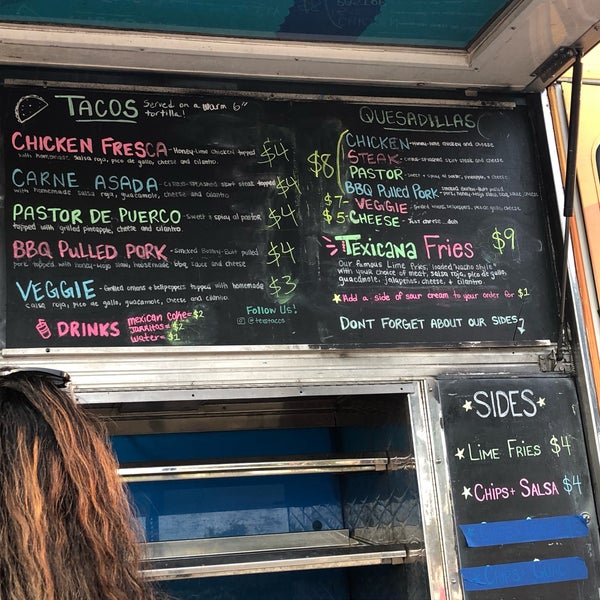 TACOS Served on a warm 6"
tortilla!
CHICKEN FRESCA - Honey-lime chicken topped $4
with homemade salsa roja, pico de gallo, cheese and cilantro.
CARNE ASADA - citrus-splashed skirt steak topped $4
with homemade salsa roja, guacamole, cheese and cilantro.
PASTOR DE PUERCO - Sweet + spicy al pastor $4
topped with grilled pineapple, cheese and cilantro.
BBQ PULLED PORK - Smoked Boston-Butt pulled $4
pork topped with honey-mayo slaw, housemade bbq sauce and cheese
VEGGIE - Grilled onions + bellpeppers topped with homemade $3
salsa roja, pico de gallo, guacamole, cheese and cilantro
DRINKS mexican coke = $2
Jarritos = $2
water = $1
Follow Us!
QUESADILLAS
$8
CHICKEN - Honey-lime chicken and cheese
STEAK - citrus-splashed skirt steak and cheese
PASTOR - sweet + spicy al pastor, pineapple, + cheese.
BBQ Pulled Pork - smoked Boston-Butt pulled
$7 - VEGGIE
$5 - CHEESE - Just cheese...duh
Texicana Fries $9
Our famous Lime Fries, loaded 'Nacho Style'
with your choice of meat, salsa roja, pico de gallo,
guacamole, jalapeños, cheese, + cilantro.
Add a side of sour cream to your order for $1
DON'T FORGET ABOUT OUR SIDES
SIDES
LIME FRIES $4
CHIPS + SALSA $4